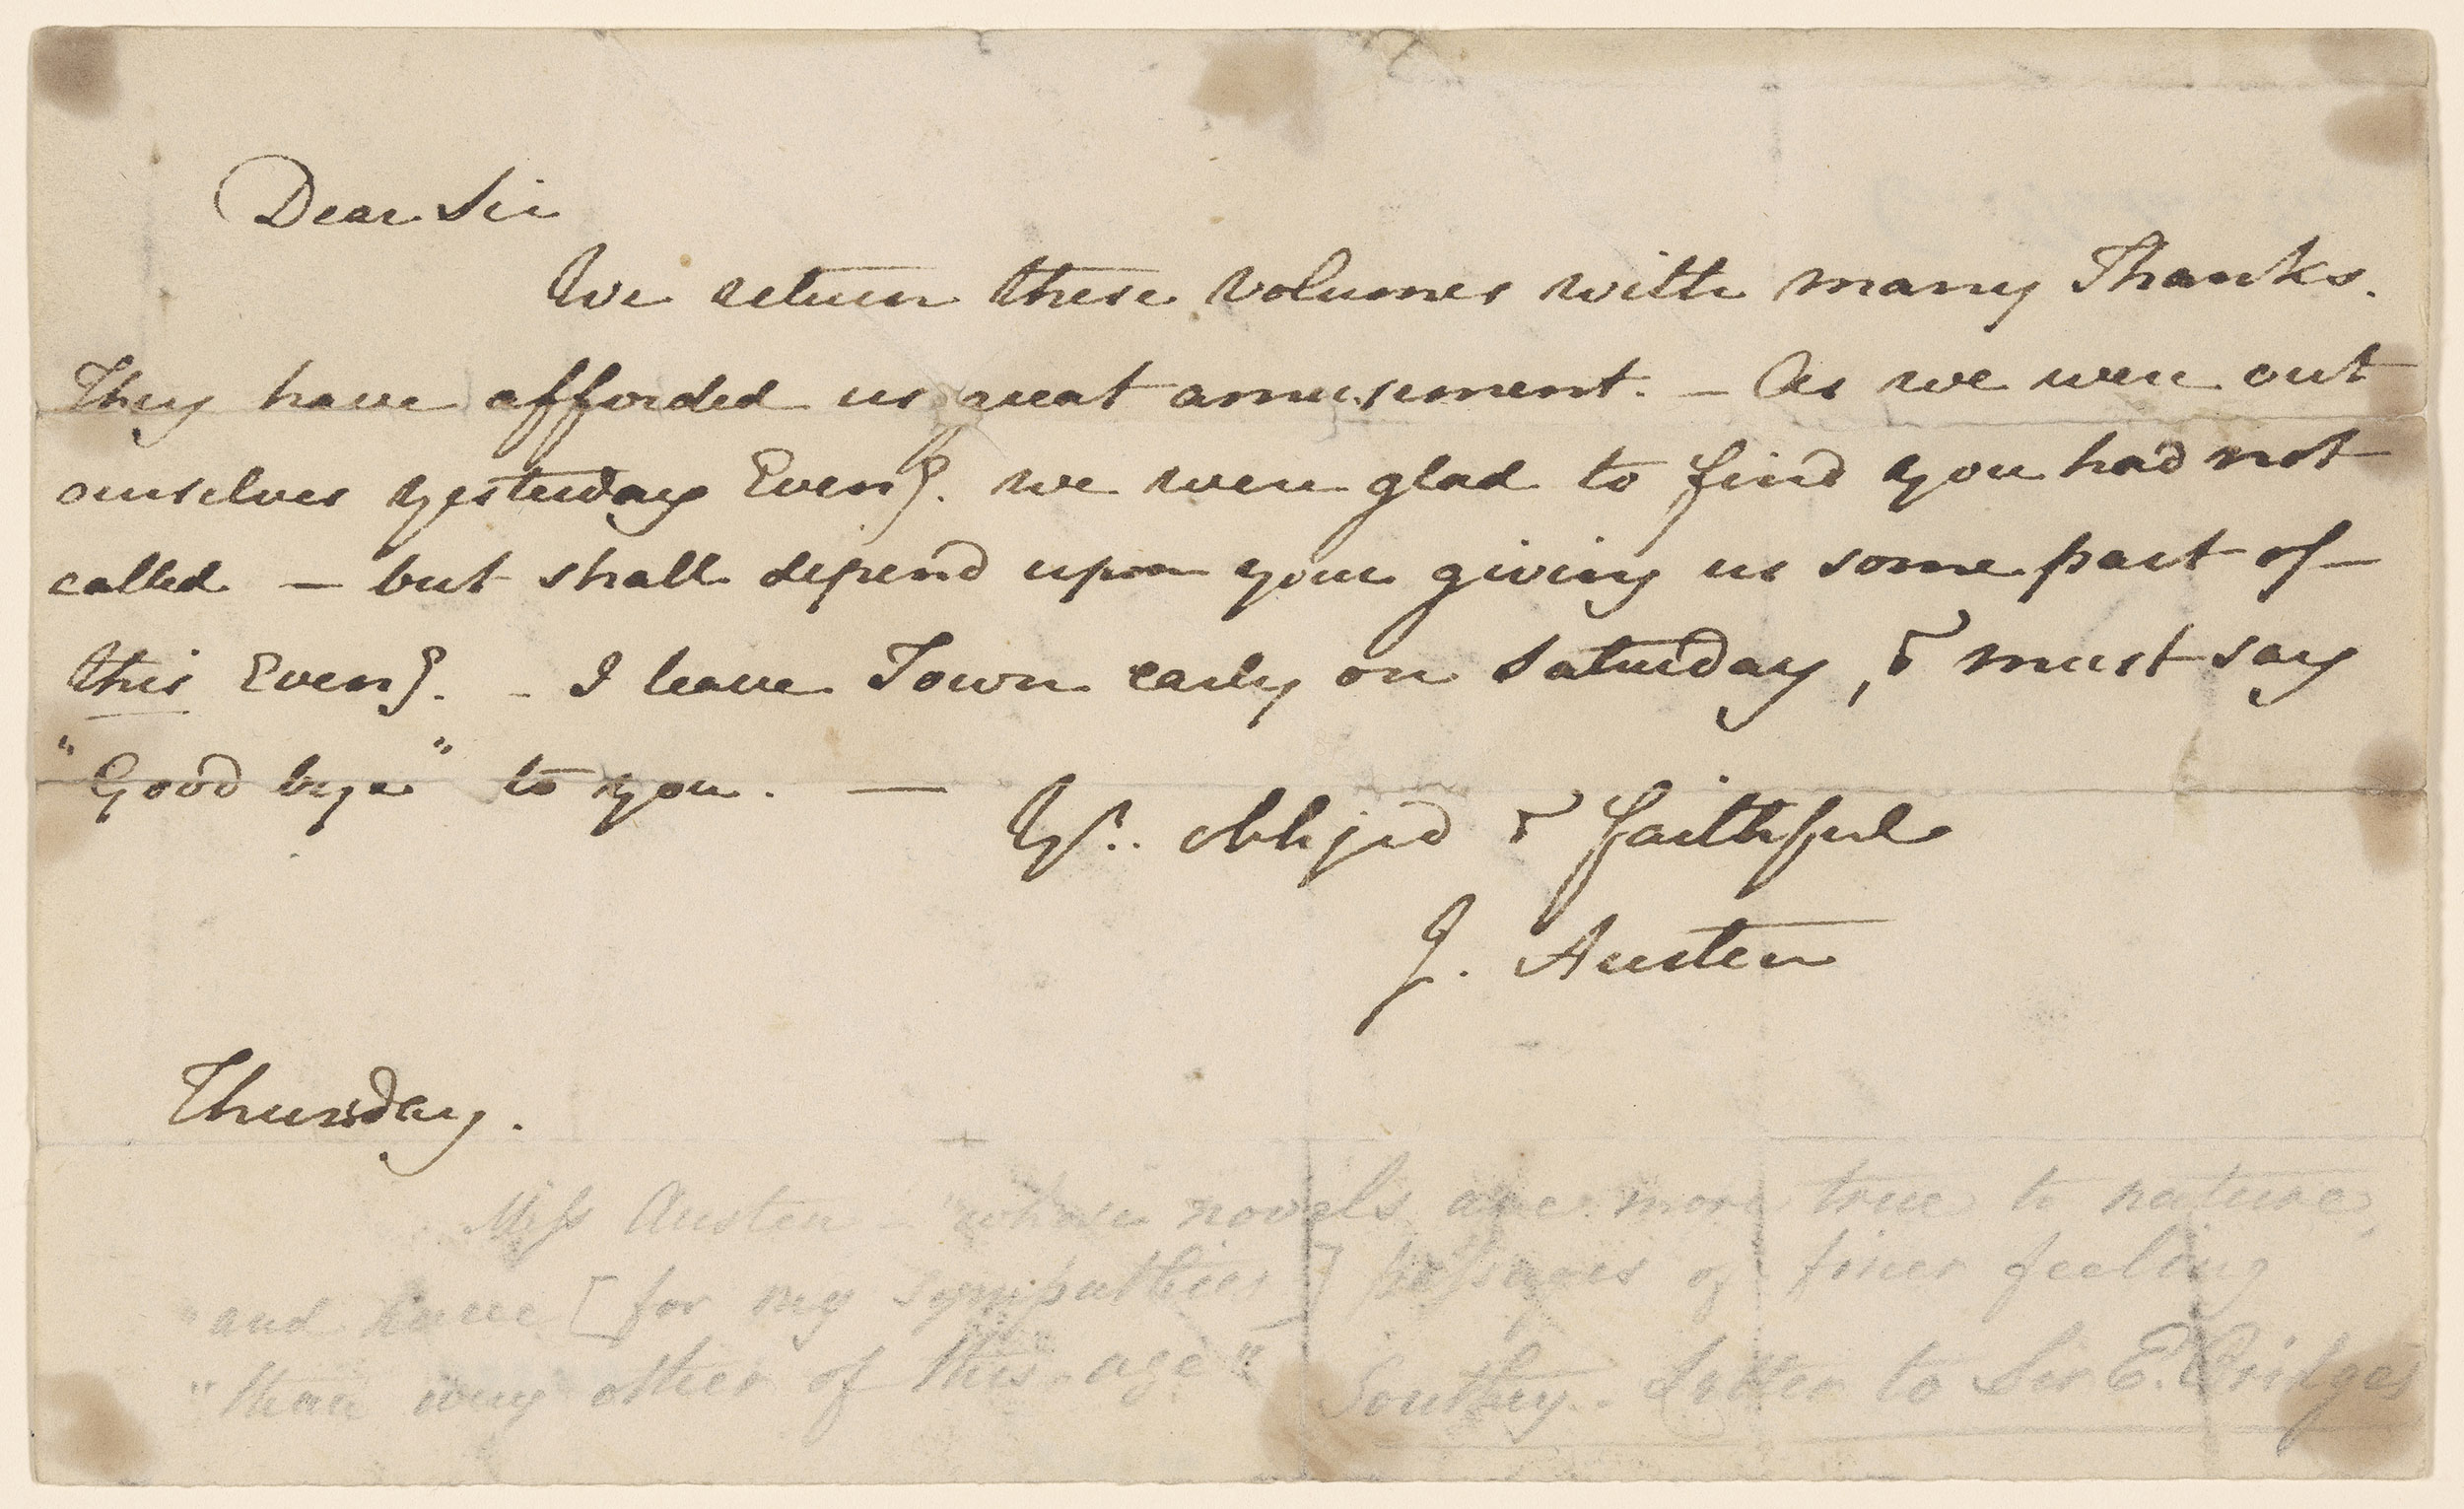 Dear Sir
We return these volumes with many Thanks.
They have afforded us great amusement. — As we were out
ourselves yesterday Eveng. we were glad to find you had not
called — but shall depend upon your giving us some part of
this Eveng. - I leave Town early on Saturday, & must say
"Good bye" to you. —
Yr. obliged & faithful
J. Austen
Thursday.
Miss Austen - "whose novels are more true to nature,
"and have [for my sympathies] passages of finer feeling
"than any other of this age"
Southey. Letter to Sir E. Bridges